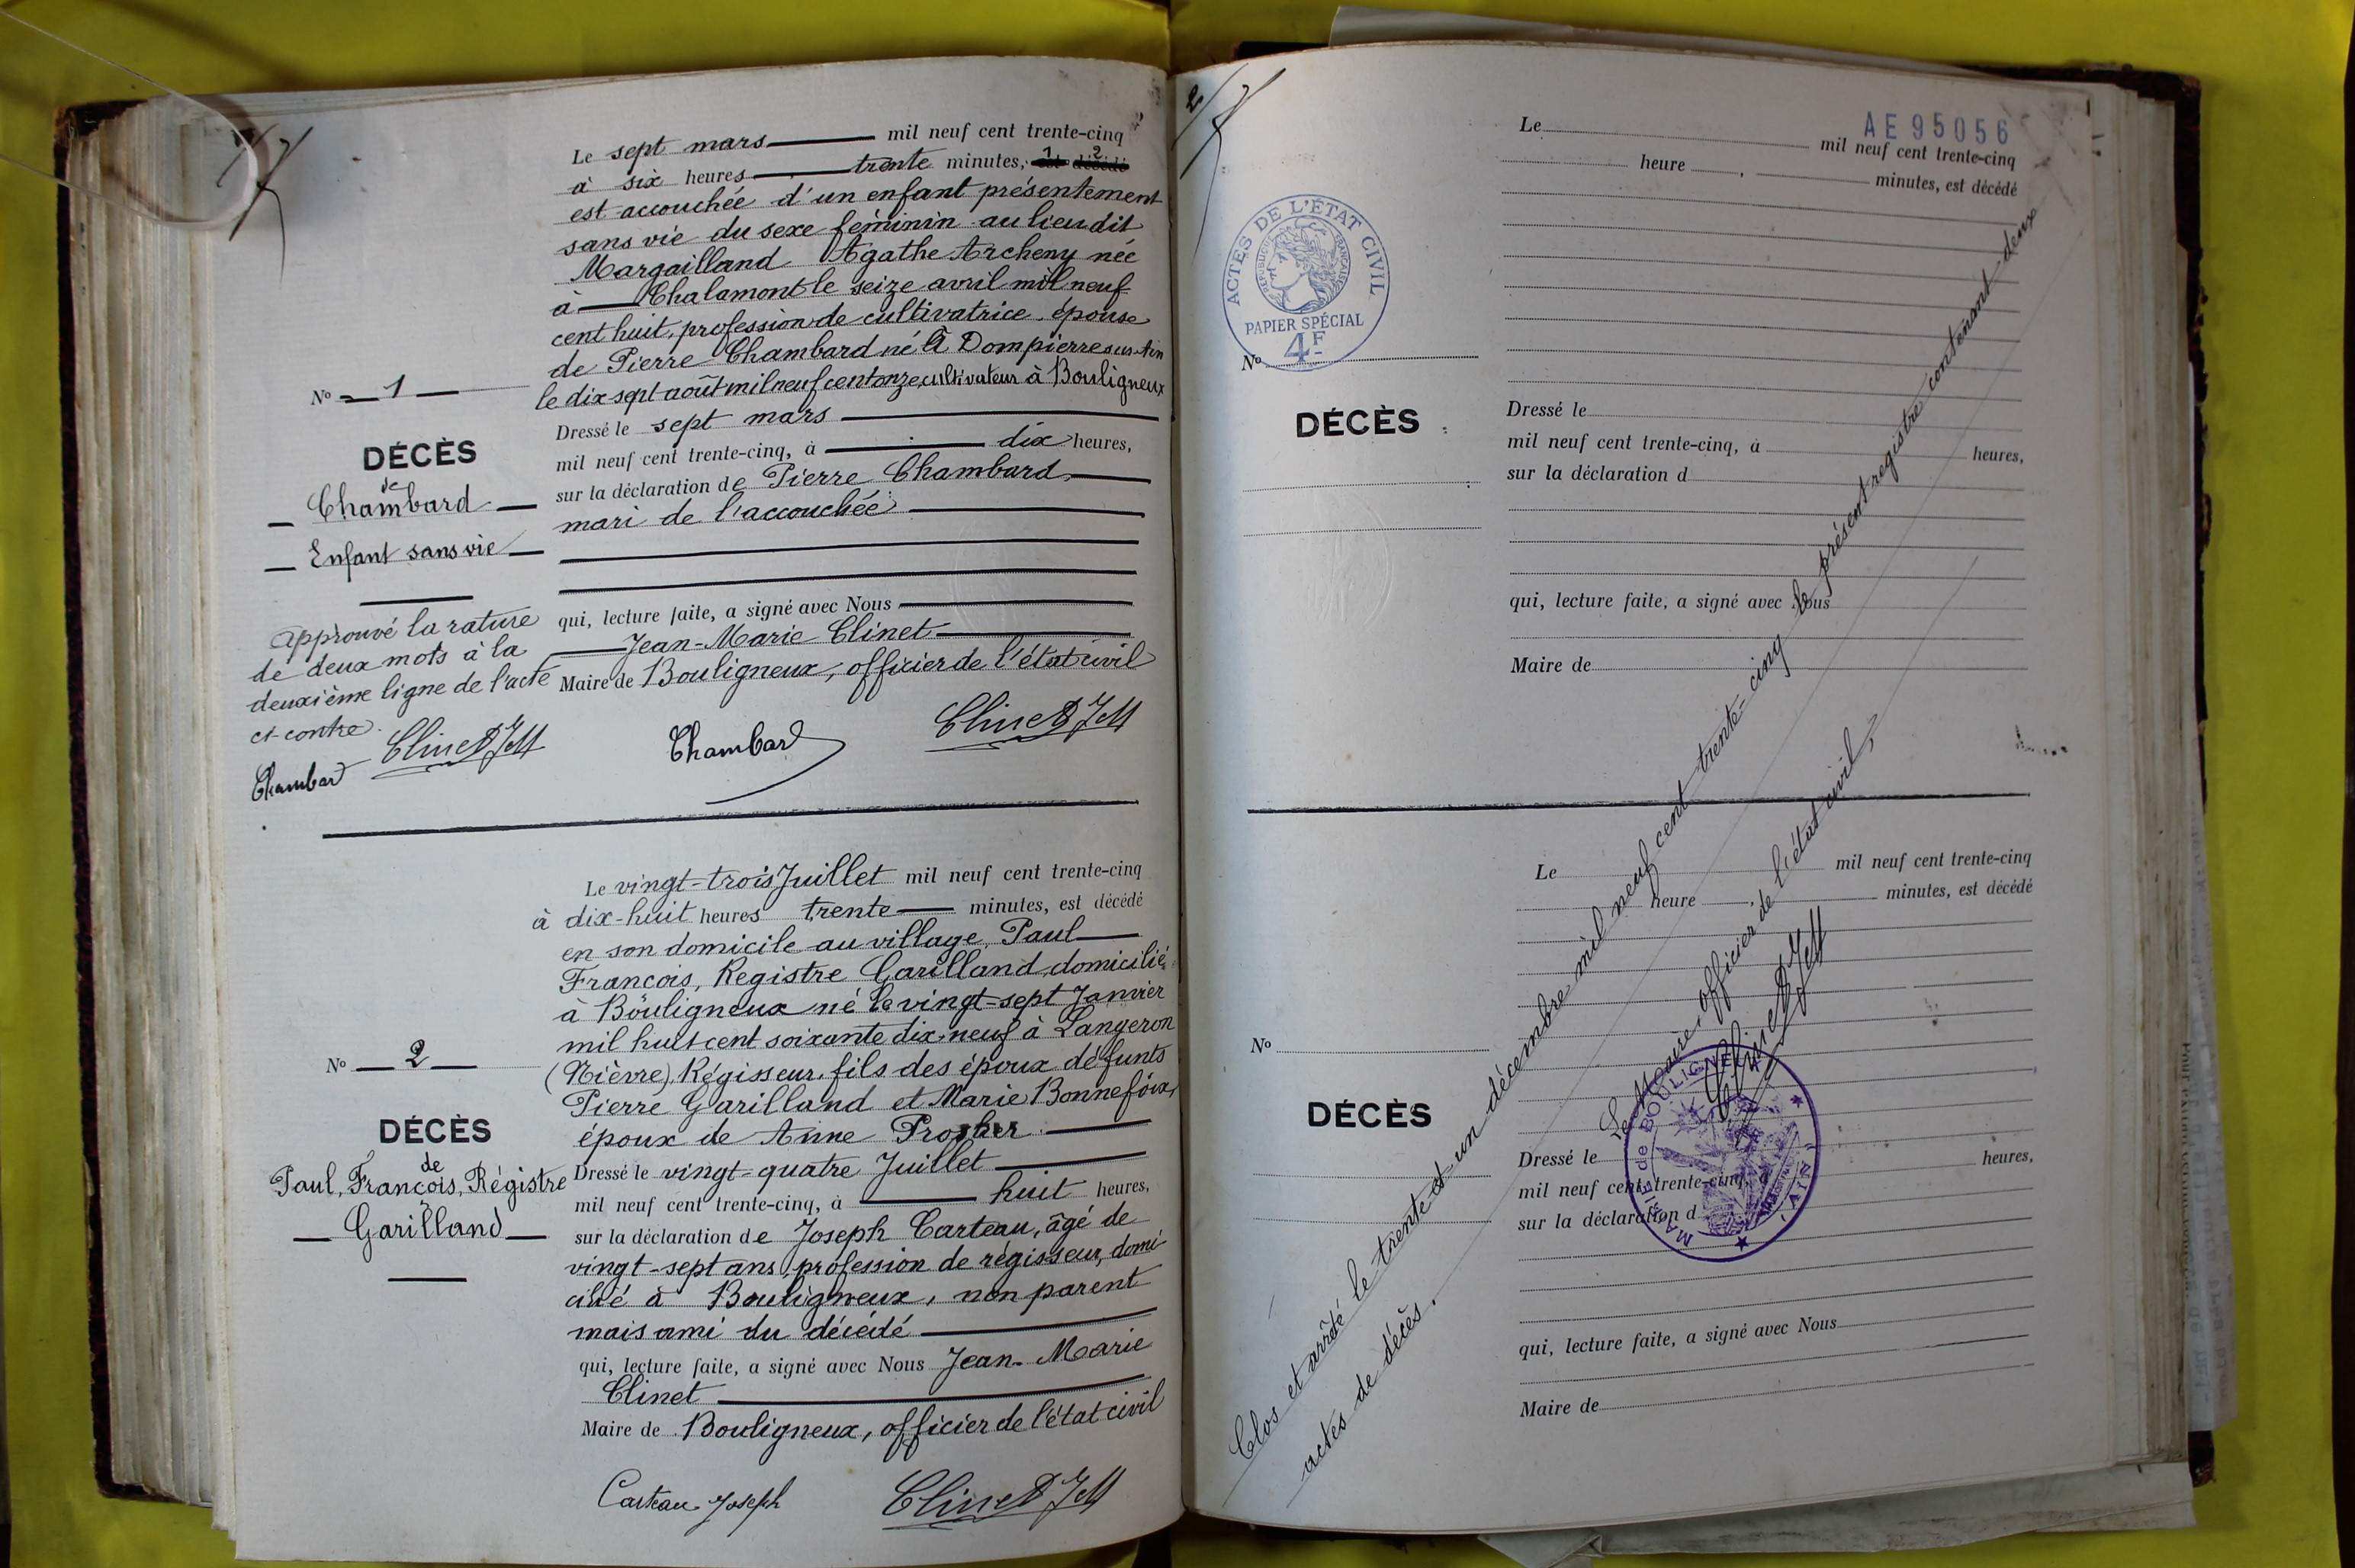 Le sept mars mil neuf cent trente-cinq
à six heures trente minutes, est décédé
1 2
est accouchée d'un enfant présentement
sans vie du sexe féminin au lieu dit
Margailland Agathe Archeny née
à Chalamont le seize avril mil neuf
cent huit, profession de cultivatrice, épouse
de Pierre Chambard né à Dompierre sur Ain
le dix sept août mil neuf cent onze, cultivateur à Bouligneux
Nº 1
DÉCÈS
de
Chambard
Enfant sans vie
Dressé le sept mars
mil neuf cent trente-cinq, à dix heures,
sur la déclaration de Pierre Chambard,
mari de l'accouchée
qui, lecture faite, a signé avec Nous
Jean-Marie Clinet
Maire de Bouligneux, officier de l'état civil
Approuvé la rature
de deux mots à la
deuxième ligne de l'acte
ci-contre.
Clinet JM
Chambard
Chambard
Clinet JM
Le vingt-trois Juillet mil neuf cent trente-cinq
à dix-huit heures trente minutes, est décédé
en son domicile au village, Paul
François, Registre Garilland, domicilié
à Bouligneux né le vingt-sept Janvier
mil huit cent soixante dix-neuf à Langeron
(Nièvre), Régisseur, fils des époux défunts
Pierre Garilland et Marie Bonnefoix,
époux de Anne
Nº 2
DÉCÈS
de
Paul, François, Régistre
Garilland
Dressé le vingt-quatre Juillet
mil neuf cent trente-cinq, à huit heures,
sur la déclaration de Joseph Carteau, âgé de
vingt-sept ans, profession de régisseur, domi-
cilié à Bouligneux, non parent
mais ami du décédé
qui, lecture faite, a signé avec Nous Jean-Marie
Clinet
Maire de Bouligneux, officier de l'état civil
Carteau Joseph
Clinet JM
2
AE95056
Le mil neuf cent trente-cinq
heure minutes, est décédé
ACTES DE L'ÉTAT CIVIL
RÉPUBLIQUE FRANÇAISE
PAPIER SPÉCIAL
4F
Nº
DÉCÈS
Dressé le
mil neuf cent trente-cinq, à heures,
sur la déclaration d
qui, lecture faite, a signé avec Nous
Maire de
Le mil neuf cent trente-cinq
heure minutes, est décédé
Nº
DÉCÈS
Dressé le heures,
mil neuf cent trente-cinq, à
sur la déclaration d
qui, lecture faite, a signé avec Nous
Maire de
Clos et arrêté le trente et un décembre mil neuf cent trente-cinq le présent registre contenant deux
actes de décès.
Le Maire, officier de l'état civil,
Clinet JM
MAIRIE de BOULIGNEUX (AIN)